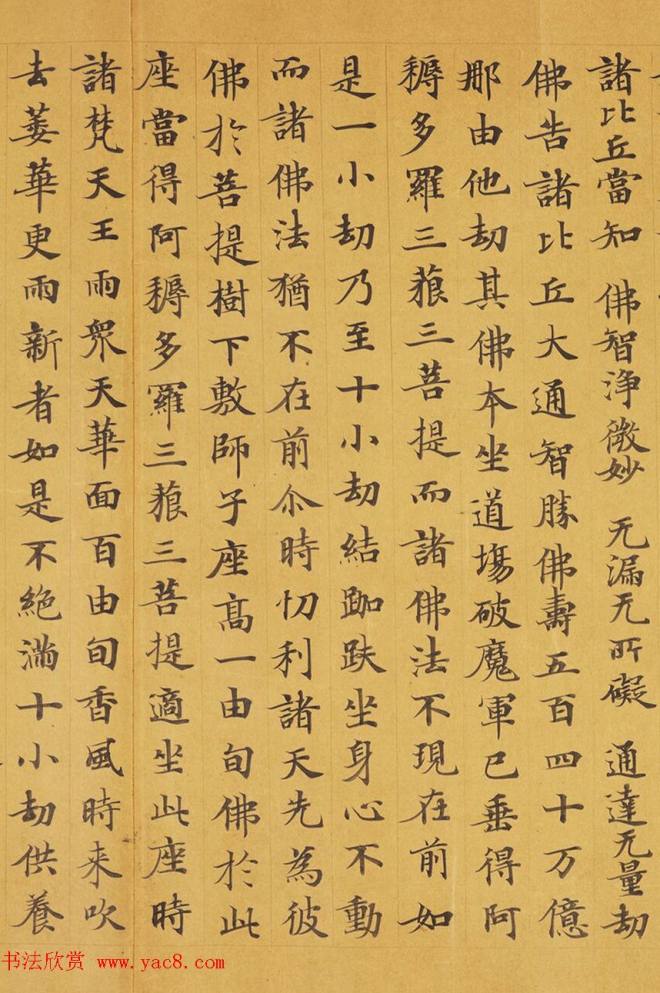 諸比丘當知 佛智淨微妙 无漏无所礙 通達无量劫
佛告諸比丘大通智勝佛壽五百四十万億
那由他劫其佛本坐道場破魔軍已垂得阿
耨多羅三藐三菩提而諸佛法不現在前如
是一小劫乃至十小劫結跏趺坐身心不動
而諸佛法猶不在前尒時忉利諸天先為彼
佛於菩提樹下敷師子座高一由旬佛於此
座當得阿耨多羅三藐三菩提適坐此座時
諸梵天王雨眾天華面百由旬香風時来吹
去萎華更雨新者如是不絕滿十小劫供養
书法欣赏 www.yac8.com